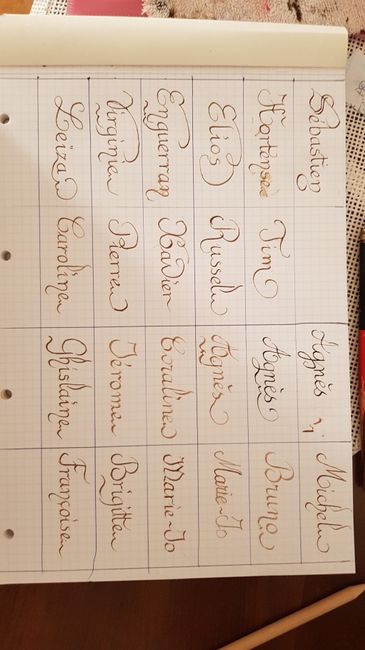 Sébastien Agnès Michel
Hortense Tim Agnès Bruno
Elios Russel Agnès Marie-Jo
Enguerran Xavier Coraline Marie-Jo
Virginie Pierre Jérôme Brigitte
Leïza Caroline Ghislaine Françoise